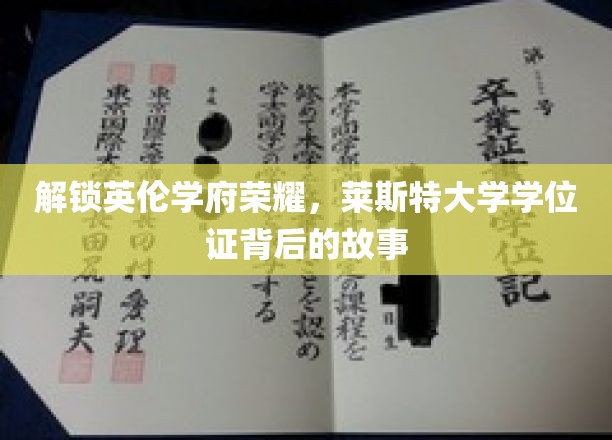 解锁英伦学府荣耀，莱斯特大学学位
证背后的故事
第 号
卒業証 学位記
本学商学部 定の課程を
修めて本学 ことを認め
学士(商学)の する
平成
日生
東京国際大学 田村愛理
東京国際大 長田尻嗣夫